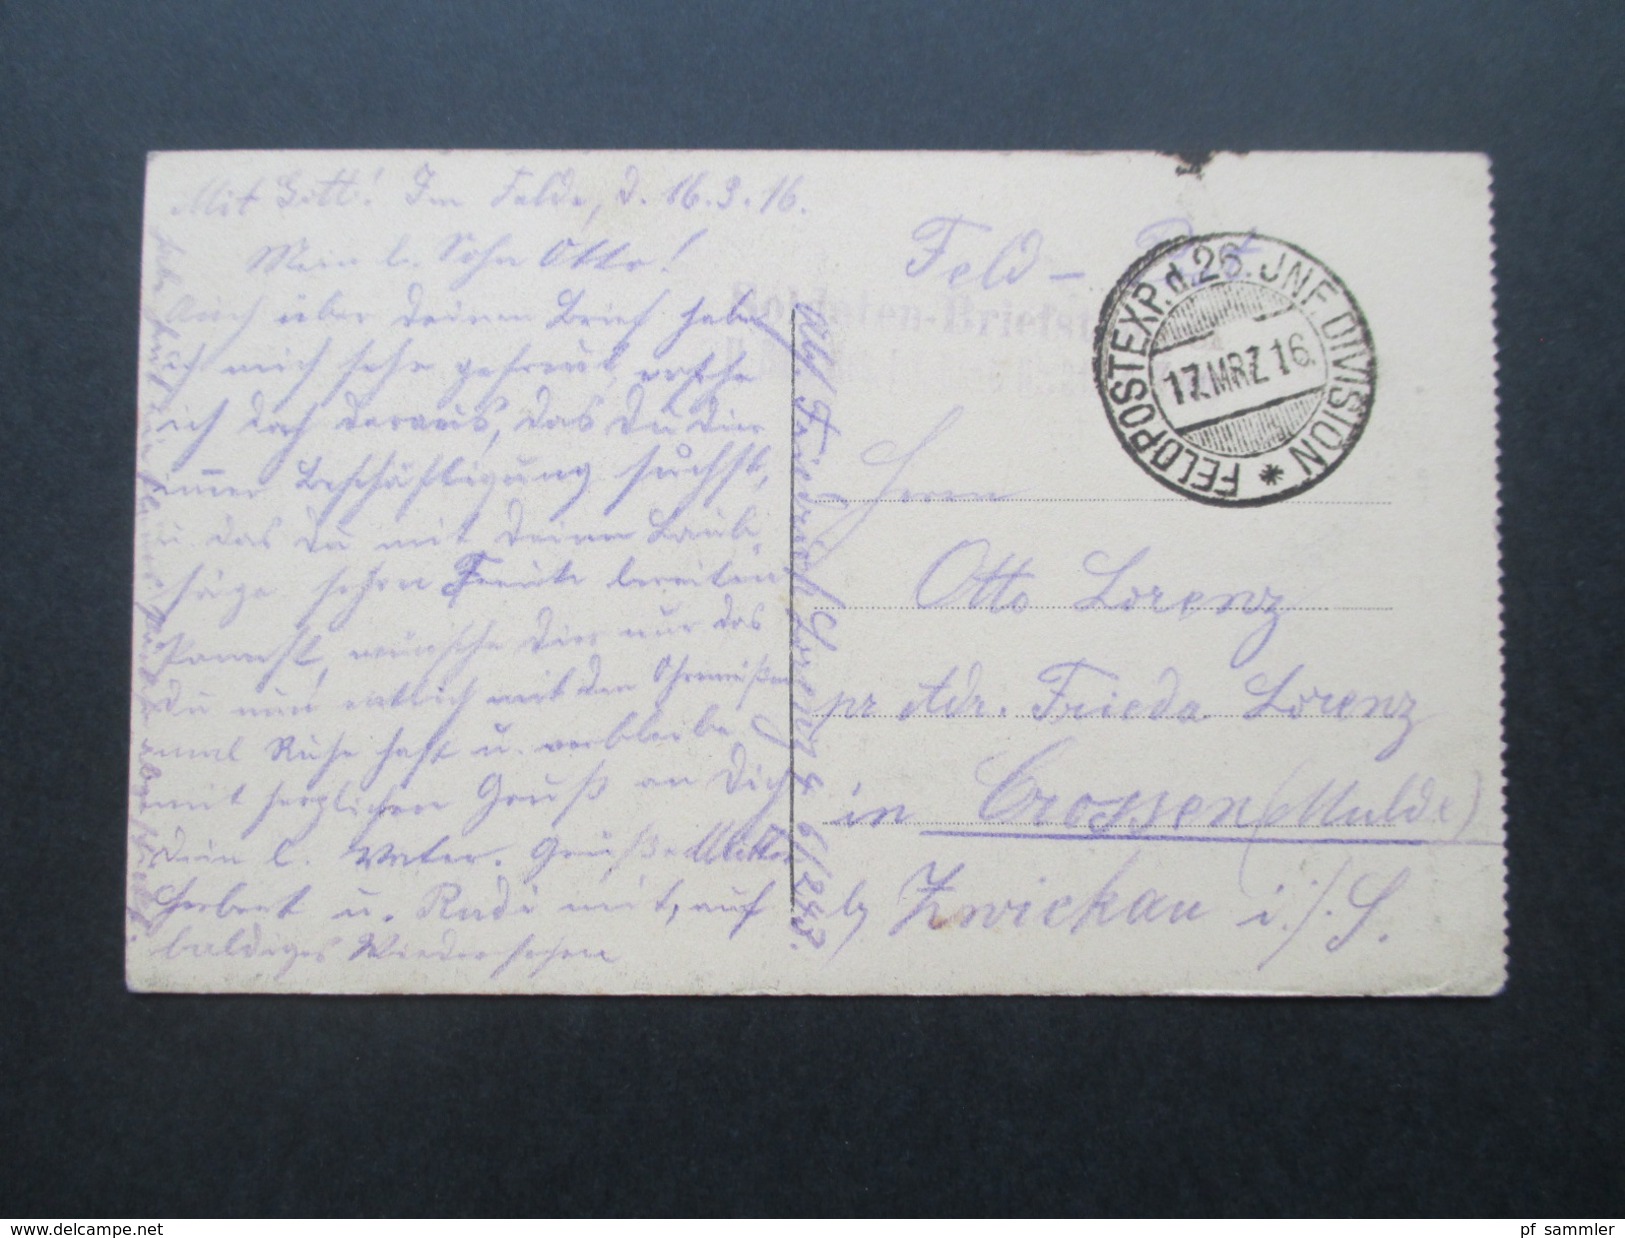 Mit Gott! Im Felde, d. 16.3.16.
Mein l. Sohn Otto!
Auch über deinen Brief habe
ich mich sehr gefreut, ersehe
ich doch daraus, das Du Dir
immer Beschäftigung suchst,
u. das Du mit Deinen Laub-
säge schon Freude bereiten
kannst, wünsche Dir nur das
Du nun entlich mit den
mal Ruhe hast u. verbleibe
mit herzlichen Gruß an Dich
Dein l. Vater. Grüße Mutter
Herbert u. Rudi mit, auf
baldiges Wiedersehen
Abs. Friedrich Lorenz 4. 6/243.
Feld - Post
Soldaten-Briefst
FELDPOSTEXP. d. 26. JNF. DIVISION *
17.MRZ 16.
Herrn
Otto Lorenz
pr Adr. Frieda Lorenz
in Crossen (Mulde)
b/ Zwickau i./S.
www.delcampe.net
pf_sammler